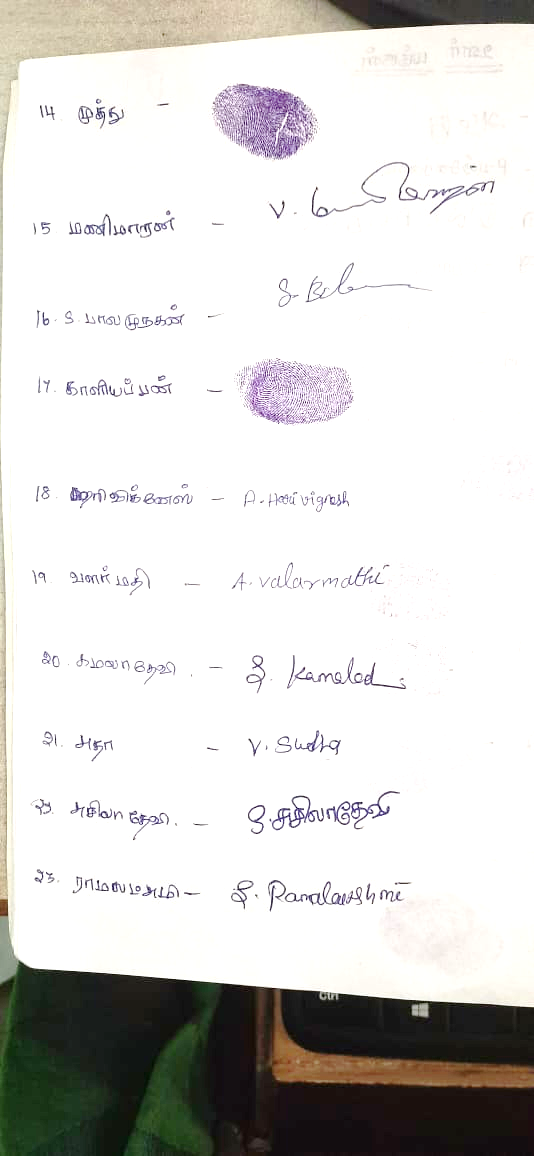 14 முத்து –
15. மணிமாறன் – V.
16. S. பாலமுருகன் – S. Bala
17. காளியப்பன் –
18. ஹரிவிக்னேஸ் – A. Hari vignesh
19 வளர்மதி – A. Valarmathi
20. கமலாதேவி. – Kamalad
21. சுதா – V. Sudha
சுசிலாதேவி. – S. சுசிலாதேவி
23. ராமலட்சுமி – Ramalakshmi
Ctrl